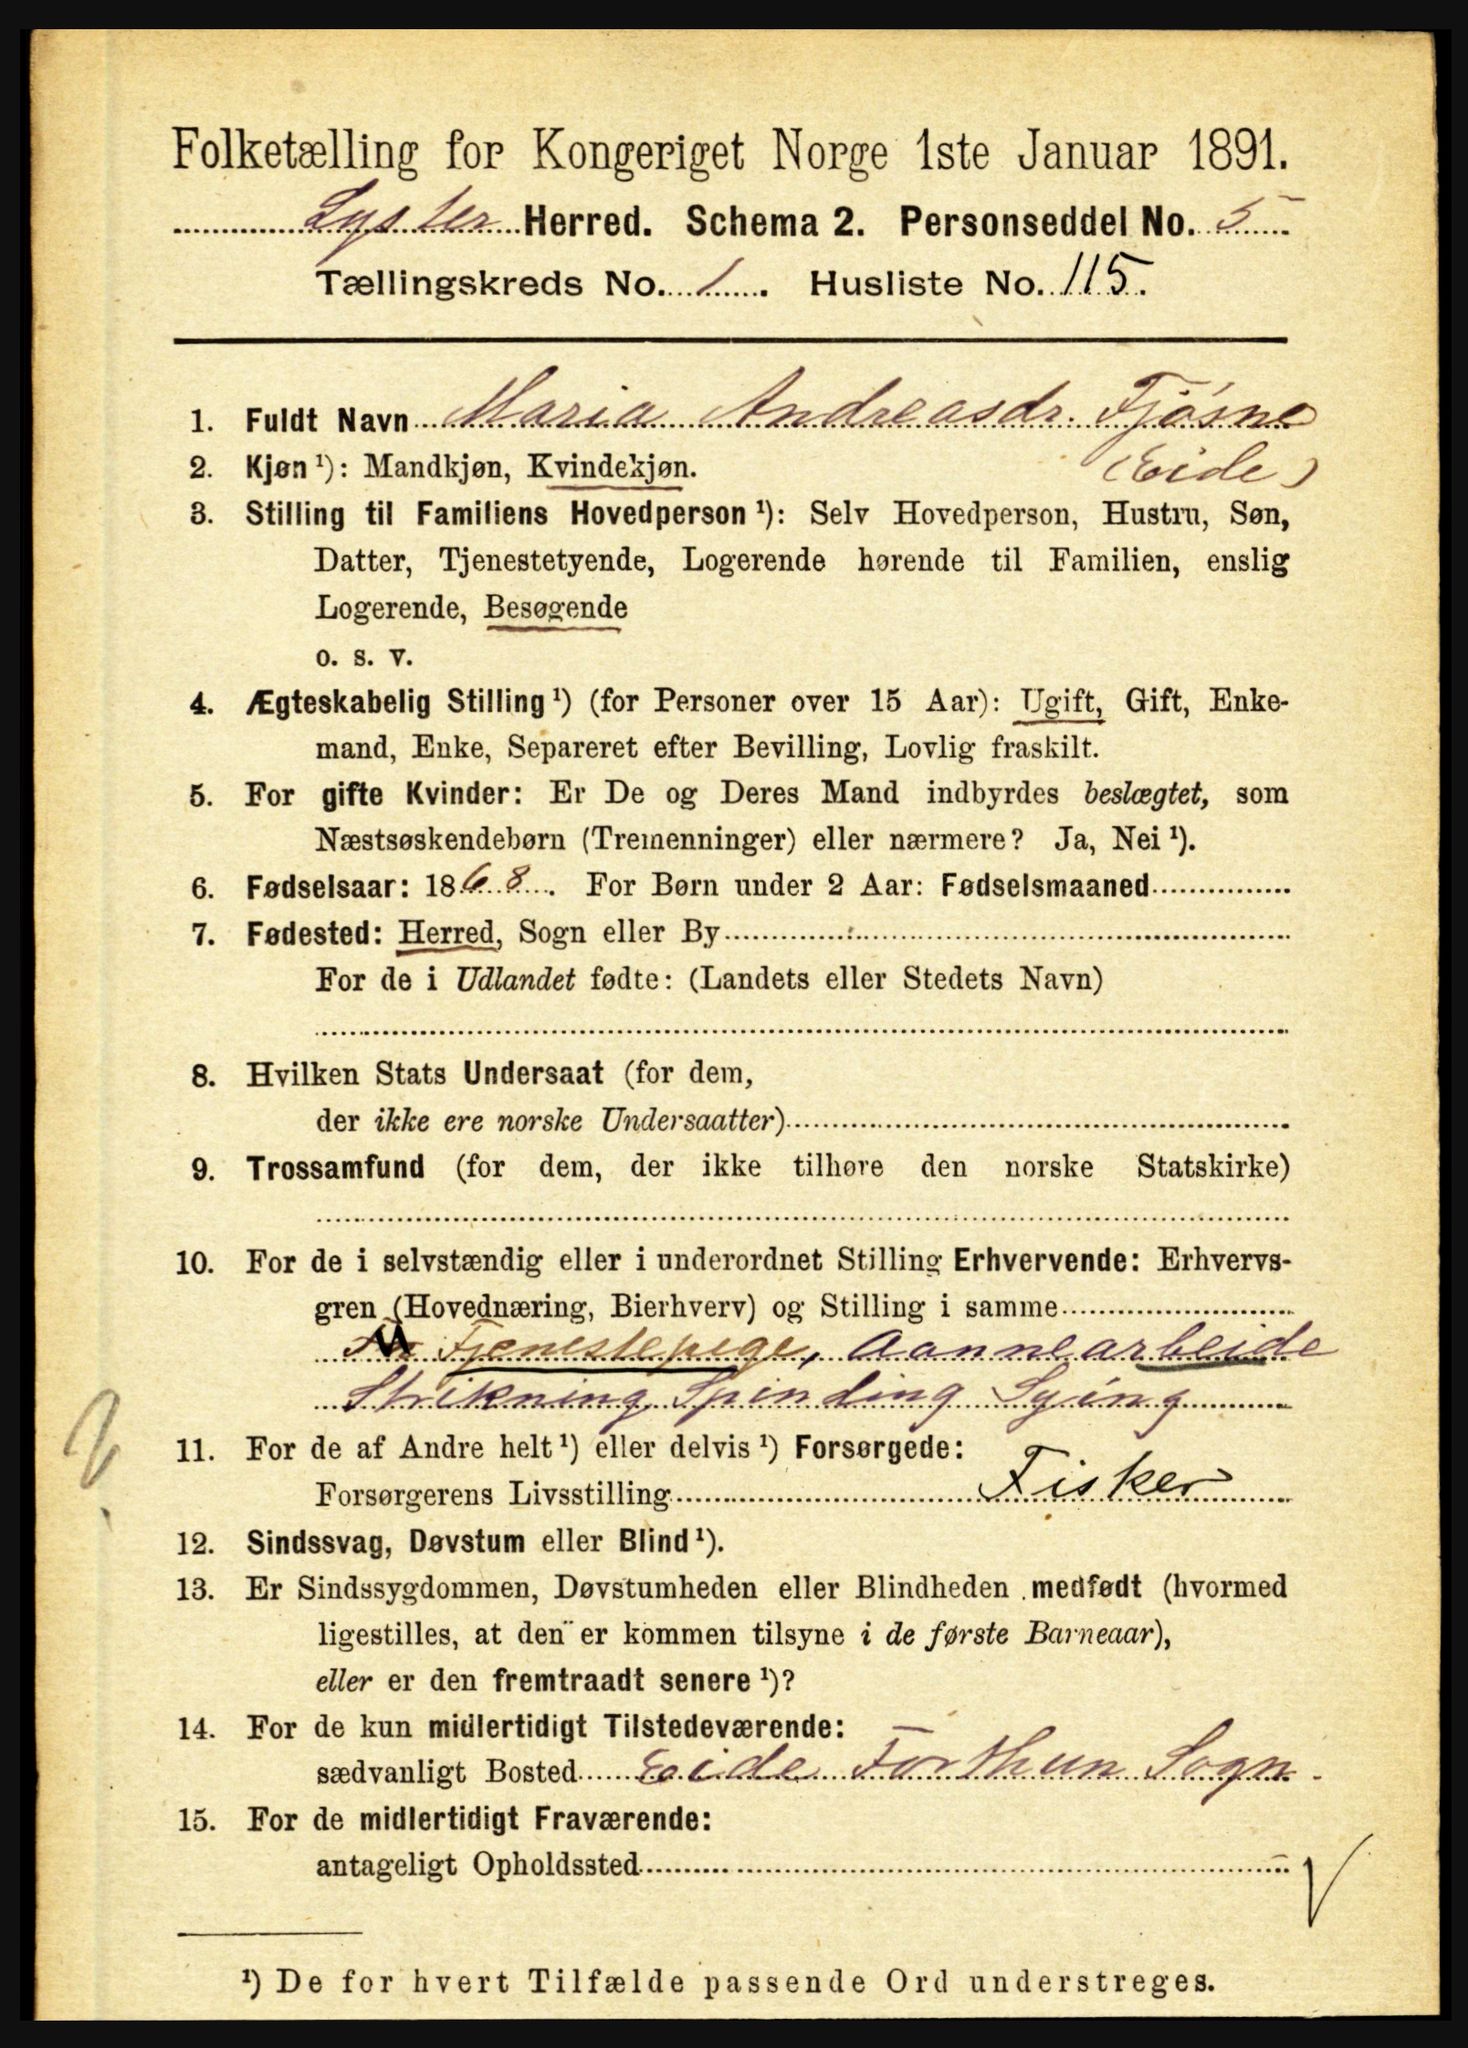 Folketælling for Kongeriget Norge 1ste Januar 1891.
Lyster Herred. Schema 2. Personseddel No. 5
Tællingskreds No. 1. Husliste No. 115.
1. Fuldt Navn Maria Andreasdr. Fjösne
(Eide)
2. Kjøn ¹): Mandkjøn, Kvindekjøn.
3. Stilling til Familiens Hovedperson ¹): Selv Hovedperson, Hustru, Søn,
Datter, Tjenestetyende, Logerende hørende til Familien, enslig
Logerende, Besøgende
o. s. v.
4. Ægteskabelig Stilling ¹) (for Personer over 15 Aar): Ugift, Gift, Enke-
mand, Enke, Separeret efter Bevilling, Lovlig fraskilt.
5. For gifte Kvinder: Er De og Deres Mand indbyrdes beslægtet, som
Næstsøskendebørn (Tremenninger) eller nærmere? Ja, Nei ¹).
6. Fødselsaar: 1868. For Børn under 2 Aar: Fødselsmaaned
7. Fødested: Herred, Sogn eller By
For de i Udlandet fødte: (Landets eller Stedets Navn)
8. Hvilken Stats Undersaat (for dem,
der ikke ere norske Undersaatter)
9. Trossamfund (for dem, der ikke tilhøre den norske Statskirke)
10. For de i selvstændig eller i underordnet Stilling Erhvervende: Erhvervs-
gren (Hovednæring, Bierhverv) og Stilling i samme
Tjenestepige, Aannearbeide
Strikning Spinding Sying
11. For de af Andre helt ¹) eller delvis ¹) Forsørgede:
Forsørgerens Livsstilling Fisker
12. Sindssvag, Døvstum eller Blind ¹).
13. Er Sindssygdommen, Døvstumheden eller Blindheden medfødt (hvormed
ligestilles, at den er kommen tilsyne i de første Barneaar),
eller er den fremtraadt senere ¹)?
14. For de kun midlertidigt Tilstedeværende:
sædvanligt Bosted Eide Forthun Sogn.
15. For de midlertidigt Fraværende:
antageligt Opholdssted
¹) De for hvert Tilfælde passende Ord understreges.